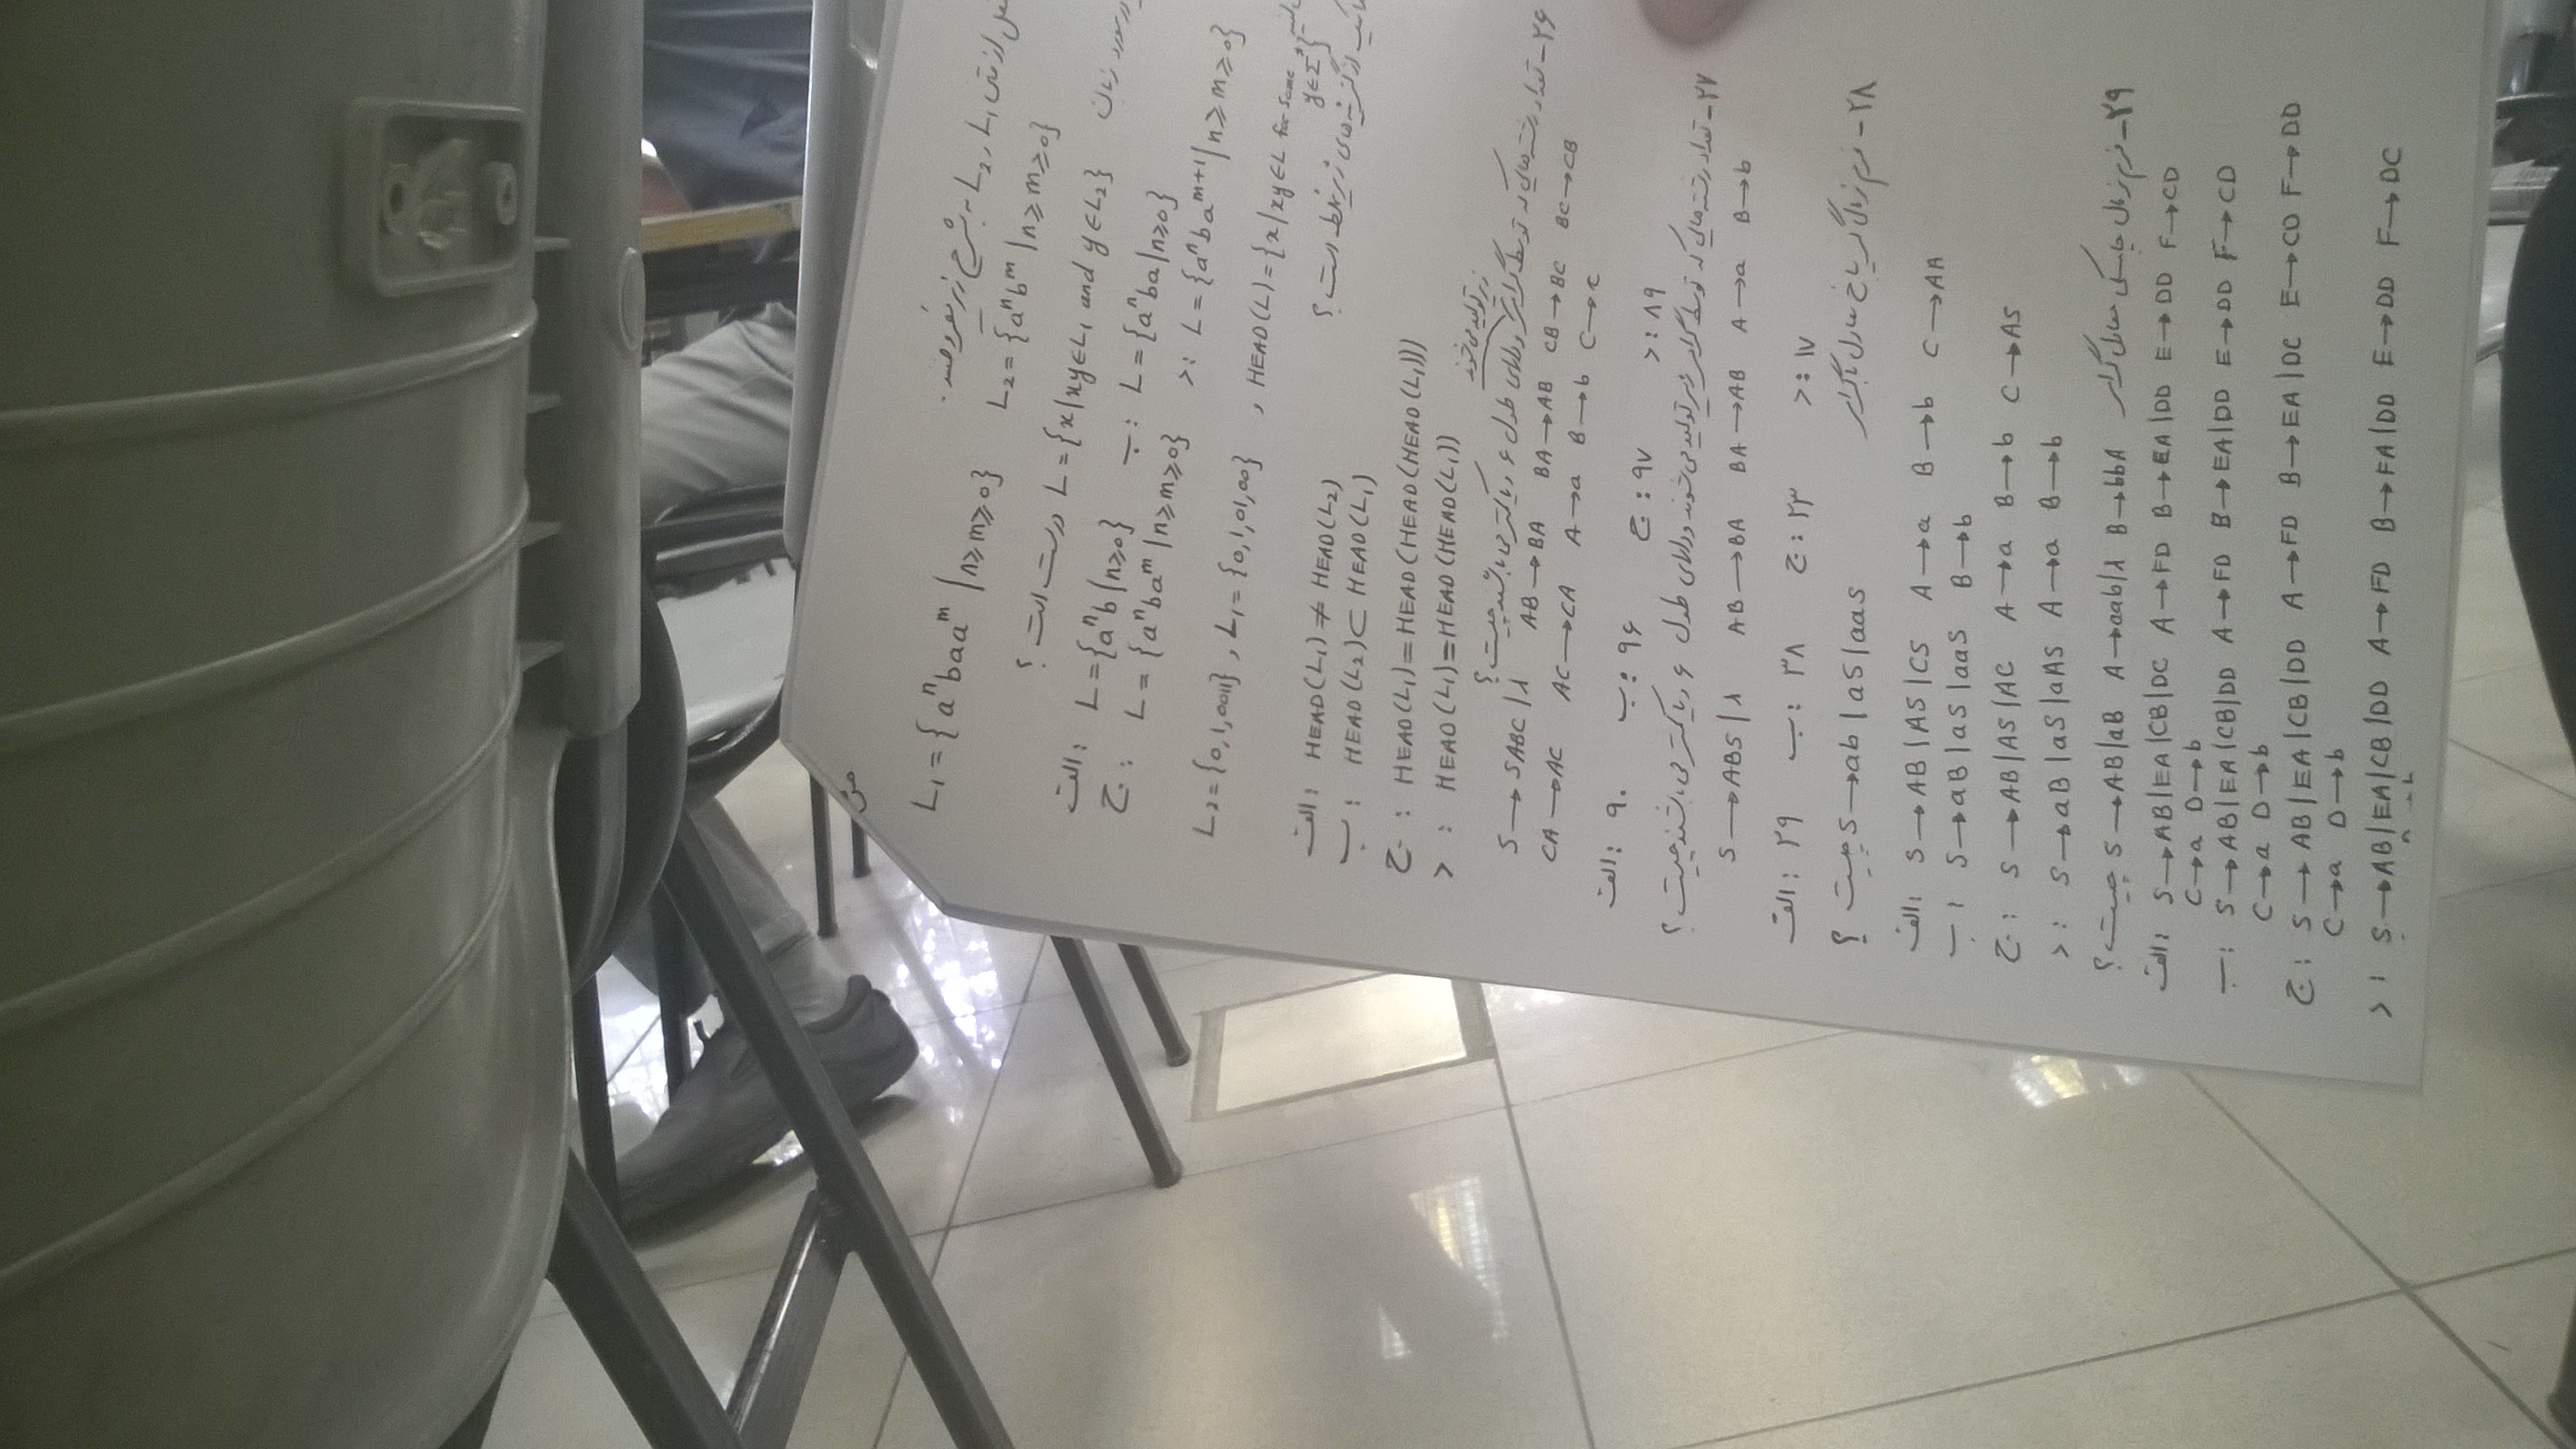 L₁ و L₂ به شرح زیر مفروضند.
L₁ = {aⁿbaaᵐ | n≥m≥0} L₂ = {aⁿbᵐ | n≥m≥0}
L = {x | xy∈L₁ and y∈L₂} درست است؟
الف: L = {aⁿb | n≥0} ب: L = {aⁿba | n≥0}
ج: L = {aⁿbaᵐ | n≥m≥0} د: L = {aⁿbaᵐ⁺¹ | n≥m≥0}
L₂ = {0,1,0011}, L₁ = {0,1,01,00}, HEAD(L) = {x | xy∈L for some y∈Σ*}
از گزینه های زیر غلط است؟
الف: HEAD(L₁) ≠ HEAD(L₂)
ب: HEAD(L₂) ⊂ HEAD(L₁)
ج: HEAD(L₁) = HEAD(HEAD(HEAD(L₁)))
د: HEAD(L₁) = HEAD(HEAD(L₁))
۲۶- تعداد رشته هایی که توسط گرامر زیر تولید می شوند و دارای طول ۶ و یا کمتر می باشند چیست؟
S→SABC|λ AB→BA BA→AB CB→BC BC→CB
CA→AC AC→CA A→a B→b C→c
الف: ۹۰ ب: ۹۶ ج: ۹۷ د: ۸۹
۲۷- تعداد رشته هایی که توسط گرامر زیر تولید می شوند و دارای طول ۶ و یا کمتر می باشند چیست؟
S→ABS|λ AB→BA BA→AB A→a B→b
الف: ۲۹ ب: ۳۸ ج: ۲۳ د: ۱۷
۲۸- فرم نرمال گریباخ معادل با گرامر
S→ab|aS|aaS چیست؟
الف: S→AB|AS|CS A→a B→b C→AA
ب: S→aB|aS|aaS B→b
ج: S→AB|AS|AC A→a B→b C→AS
د: S→aB|aS|aAS A→a B→b
۲۹- فرم نرمال چامسکی معادل گرامر S→AB|aB A→aab|λ B→bbA چیست؟
الف: S→AB|EA|CB|DC A→FD B→EA|DD E→DD F→CD
C→a D→b
ب: S→AB|EA|CB|DD A→FD B→EA|DD E→DD F→CD
C→a D→b
ج: S→AB|EA|CB|DD A→FD B→EA|DC E→CD F→DD
C→a D→b
د: S→AB|EA|CB|DD A→FD B→FA|DD E→DD F→DC